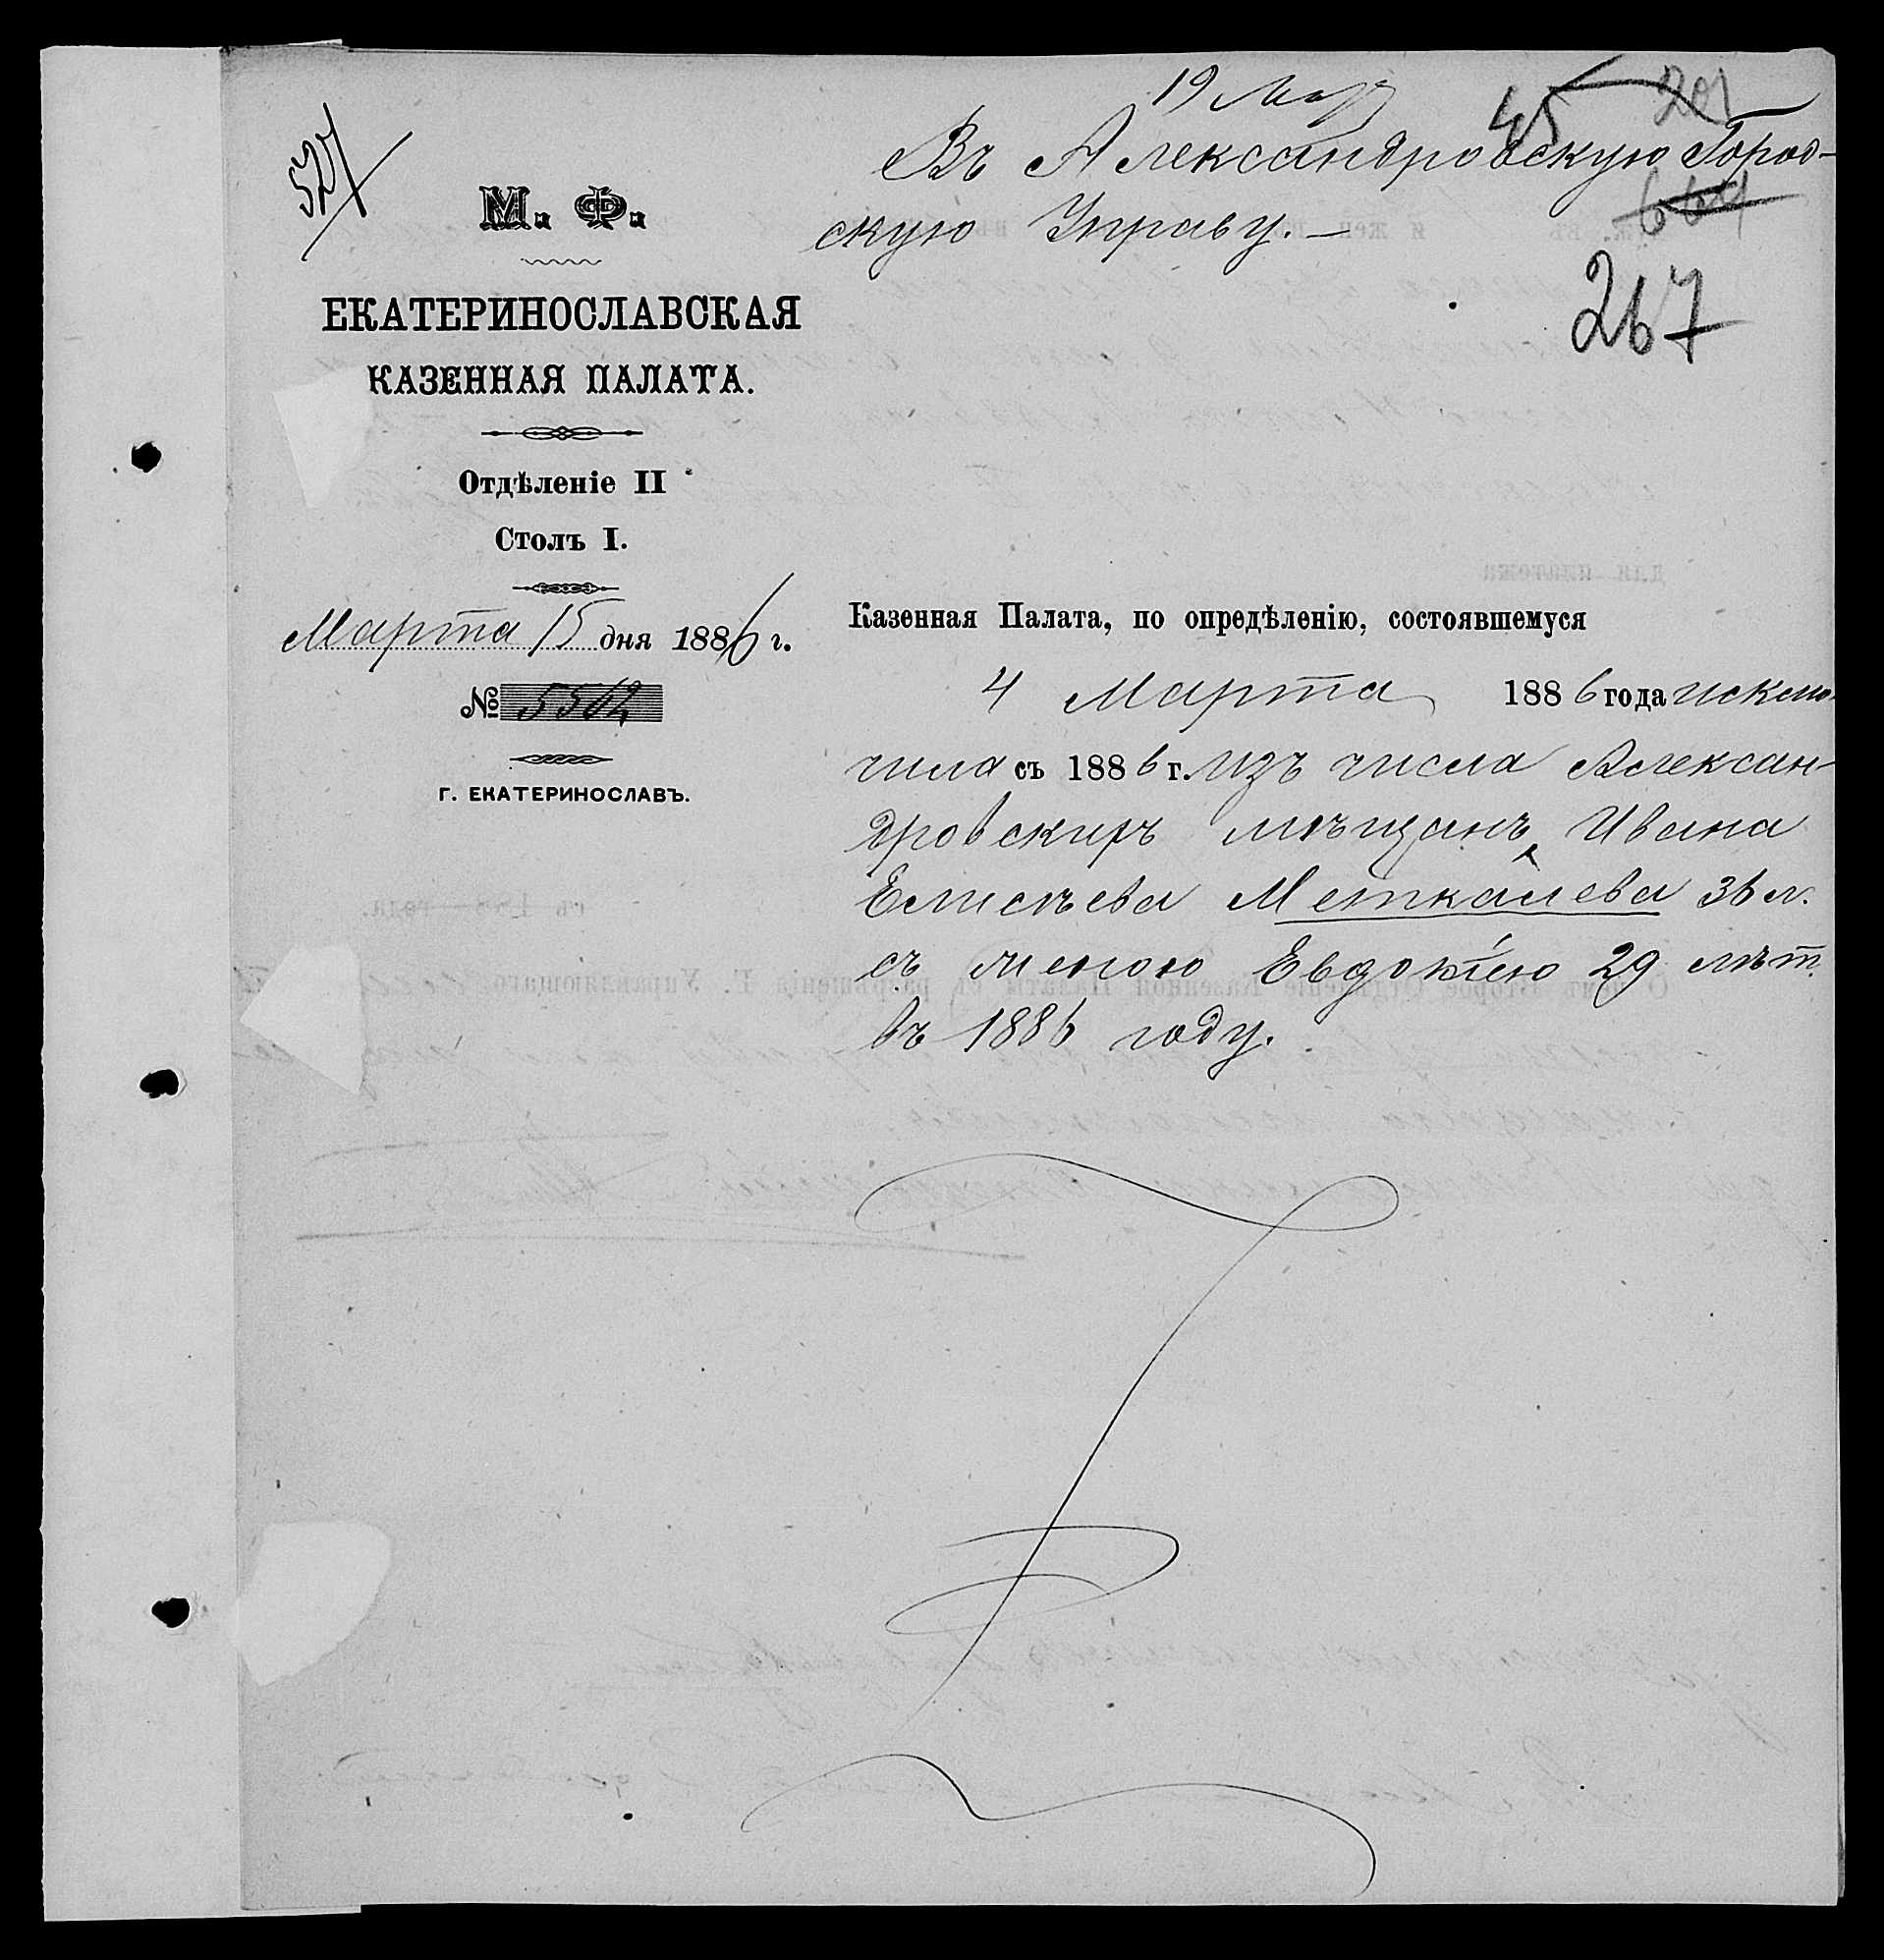 527
19 Мар
45
201
Въ Александровскую Город-
скую Управу. —
664
267
М. Ф.
ЕКАТЕРИНОСЛАВСКАЯ
КАЗЕННАЯ ПАЛАТА.
Отдѣленіе II
Столъ I.
Марта 15 дня 1886 г.
№ 5562
г. ЕКАТЕРИНОСЛАВЪ.
Казенная Палата, по опредѣленію, состоявшемуся
4 Марта 1886 года исклю-
чила съ 1886 г. изъ числа Алексан-
дровскихъ мѣщанъ Ивана
Елисѣева Меткалева 36 л.
съ женою Евдокіею 29 лѣт.
въ 1886 году.